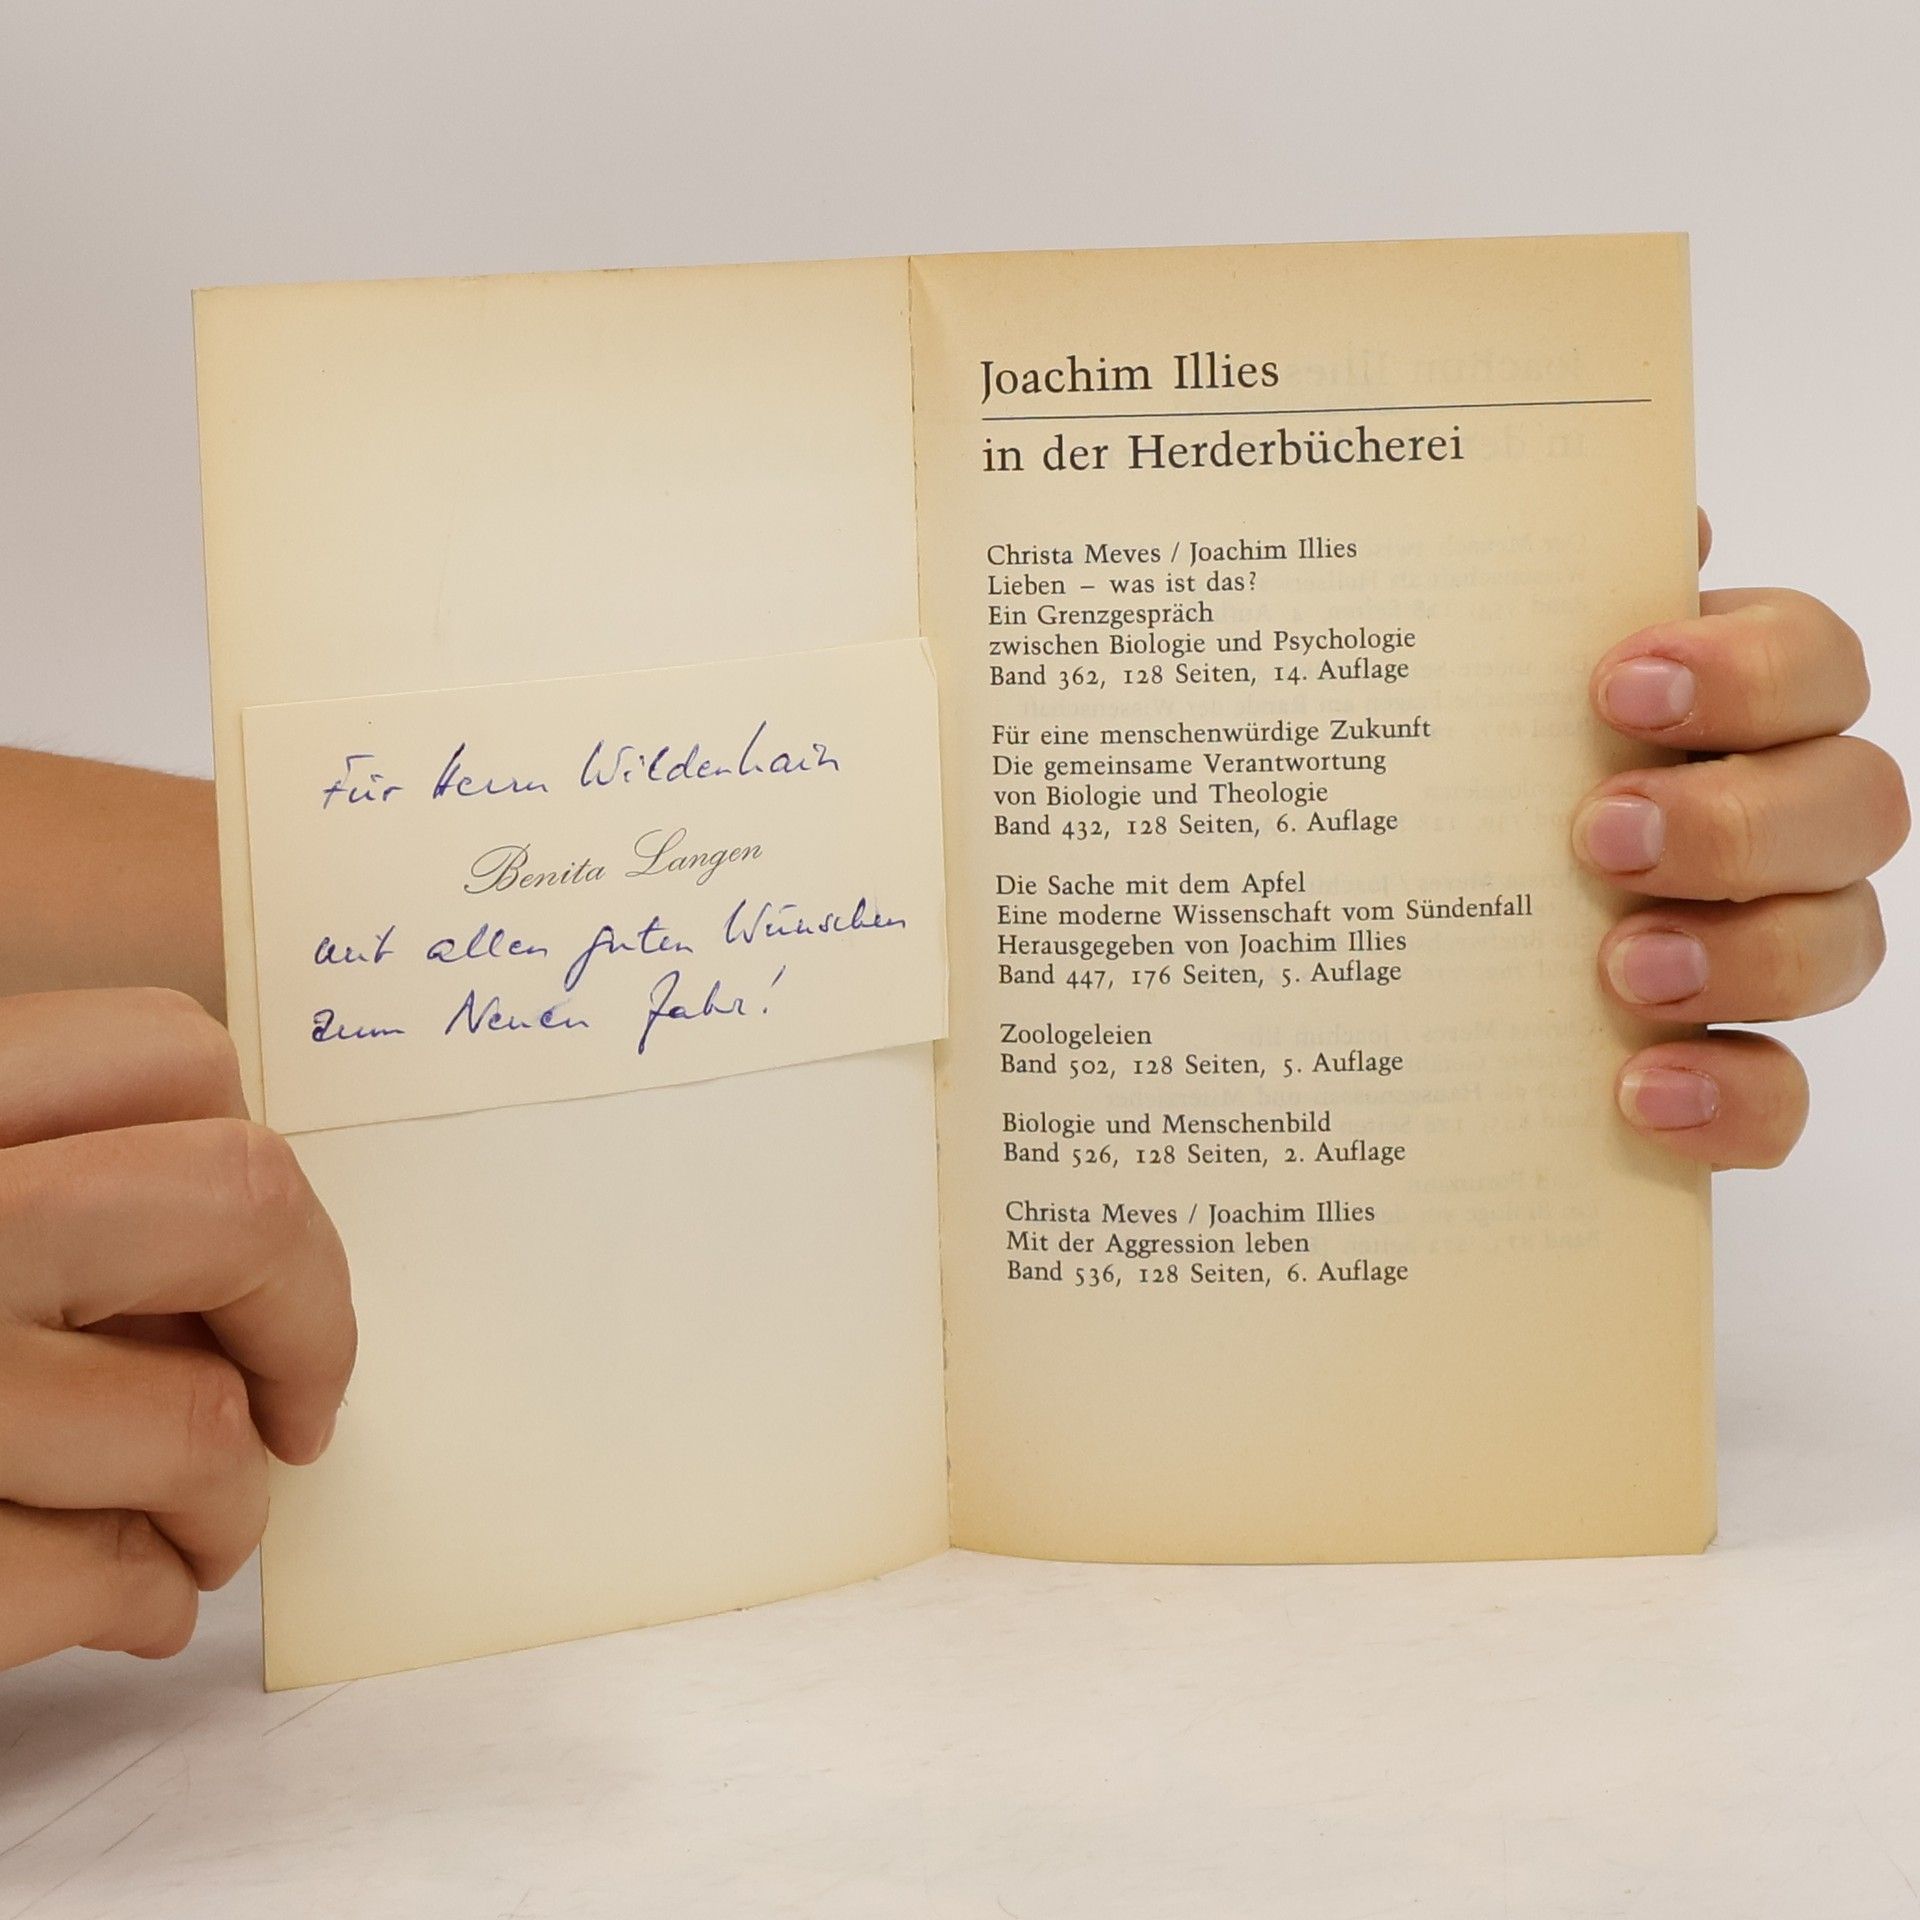 Für Herrn Wildenhain
Benita Langen
mit allen guten Wünschen
zum Neuen Jahr!
Joachim Illies
in der Herderbücherei
Christa Meves / Joachim Illies
Lieben – was ist das?
Ein Grenzgespräch
zwischen Biologie und Psychologie
Band 362, 128 Seiten, 14. Auflage
Für eine menschenwürdige Zukunft
Die gemeinsame Verantwortung
von Biologie und Theologie
Band 432, 128 Seiten, 6. Auflage
Die Sache mit dem Apfel
Eine moderne Wissenschaft vom Sündenfall
Herausgegeben von Joachim Illies
Band 447, 176 Seiten, 5. Auflage
Zoologeleien
Band 502, 128 Seiten, 5. Auflage
Biologie und Menschenbild
Band 526, 128 Seiten, 2. Auflage
Christa Meves / Joachim Illies
Mit der Aggression leben
Band 536, 128 Seiten, 6. Auflage